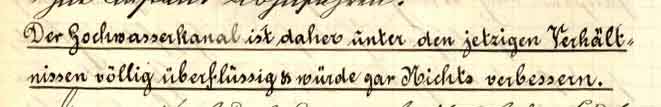 Der Hochwasserkanal ist daher unter den jetzigen Verhält-
nissen völlig überflüssig & würde gar Nichts verbessern.